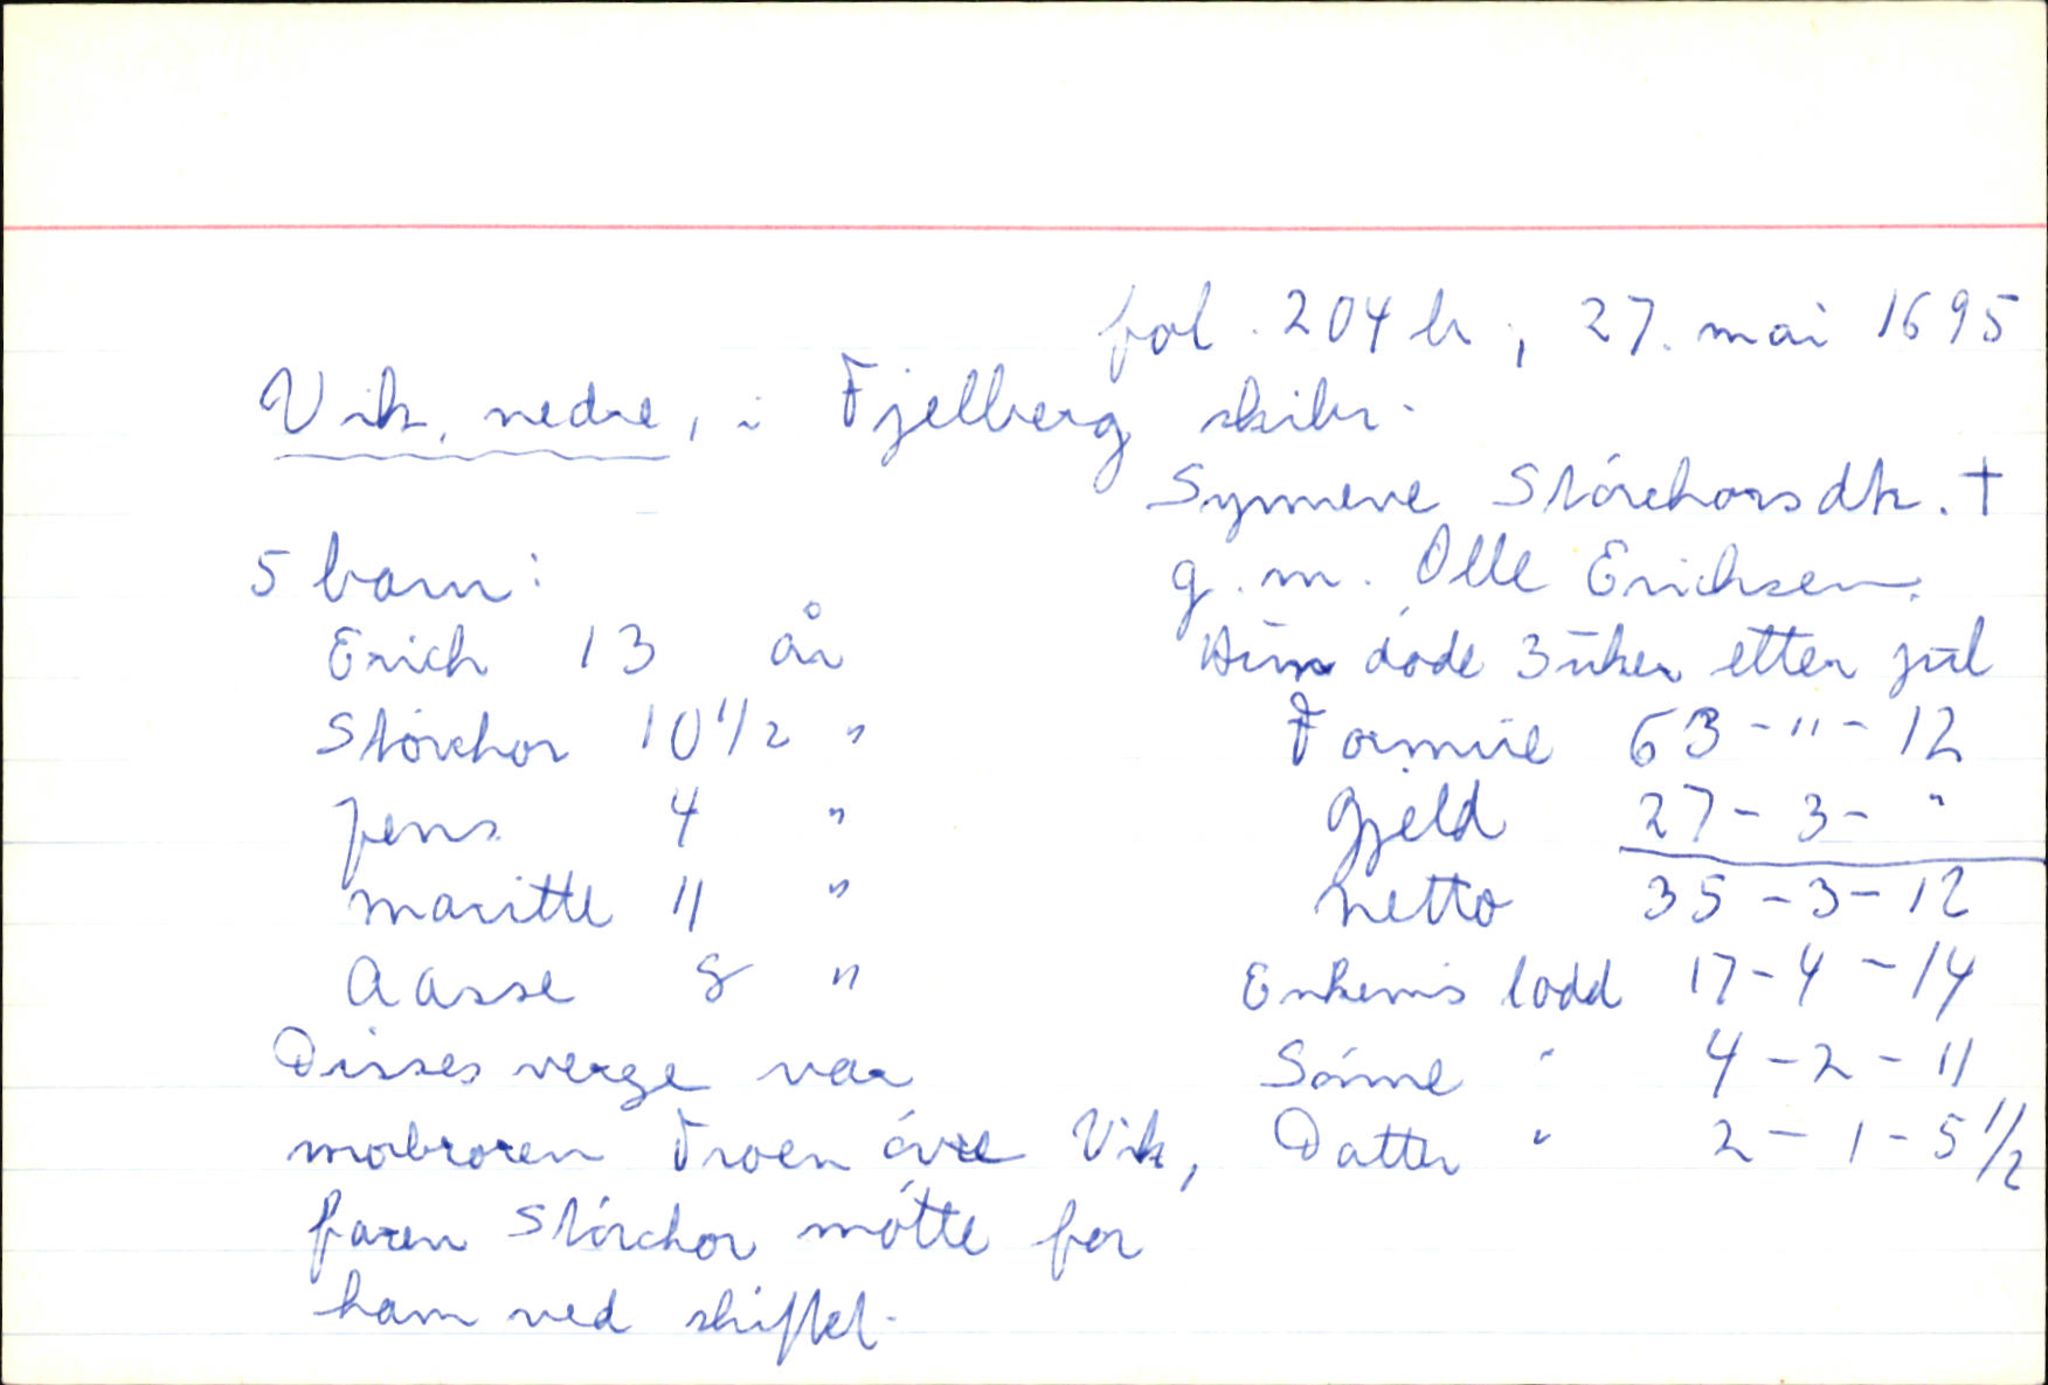 fol. 204 b, 27. mai 1695
Vik, nedre, i Fjelberg skibr.
Synneve Stórchorsdtr. †
5 barn: g. m. Olle Erichsen.
Erich 13 år Hun dóde 3 uker etter jul
Stórchor 10 1/2 " Formue 63 - " - 12
Jens 4 " Gjeld 27 - 3 - "
Maritte 11 " Netto 35 - 3 - 12
Aasse 8 " Enkens lodd 17 - 4 - 14
Disses verge var Sónne " 4 - 2 - 11
morbroren Troen óvre Vik, Datter " 2 - 1 - 5 1/2
faren Stórchor mótte for
ham ved skiftet.